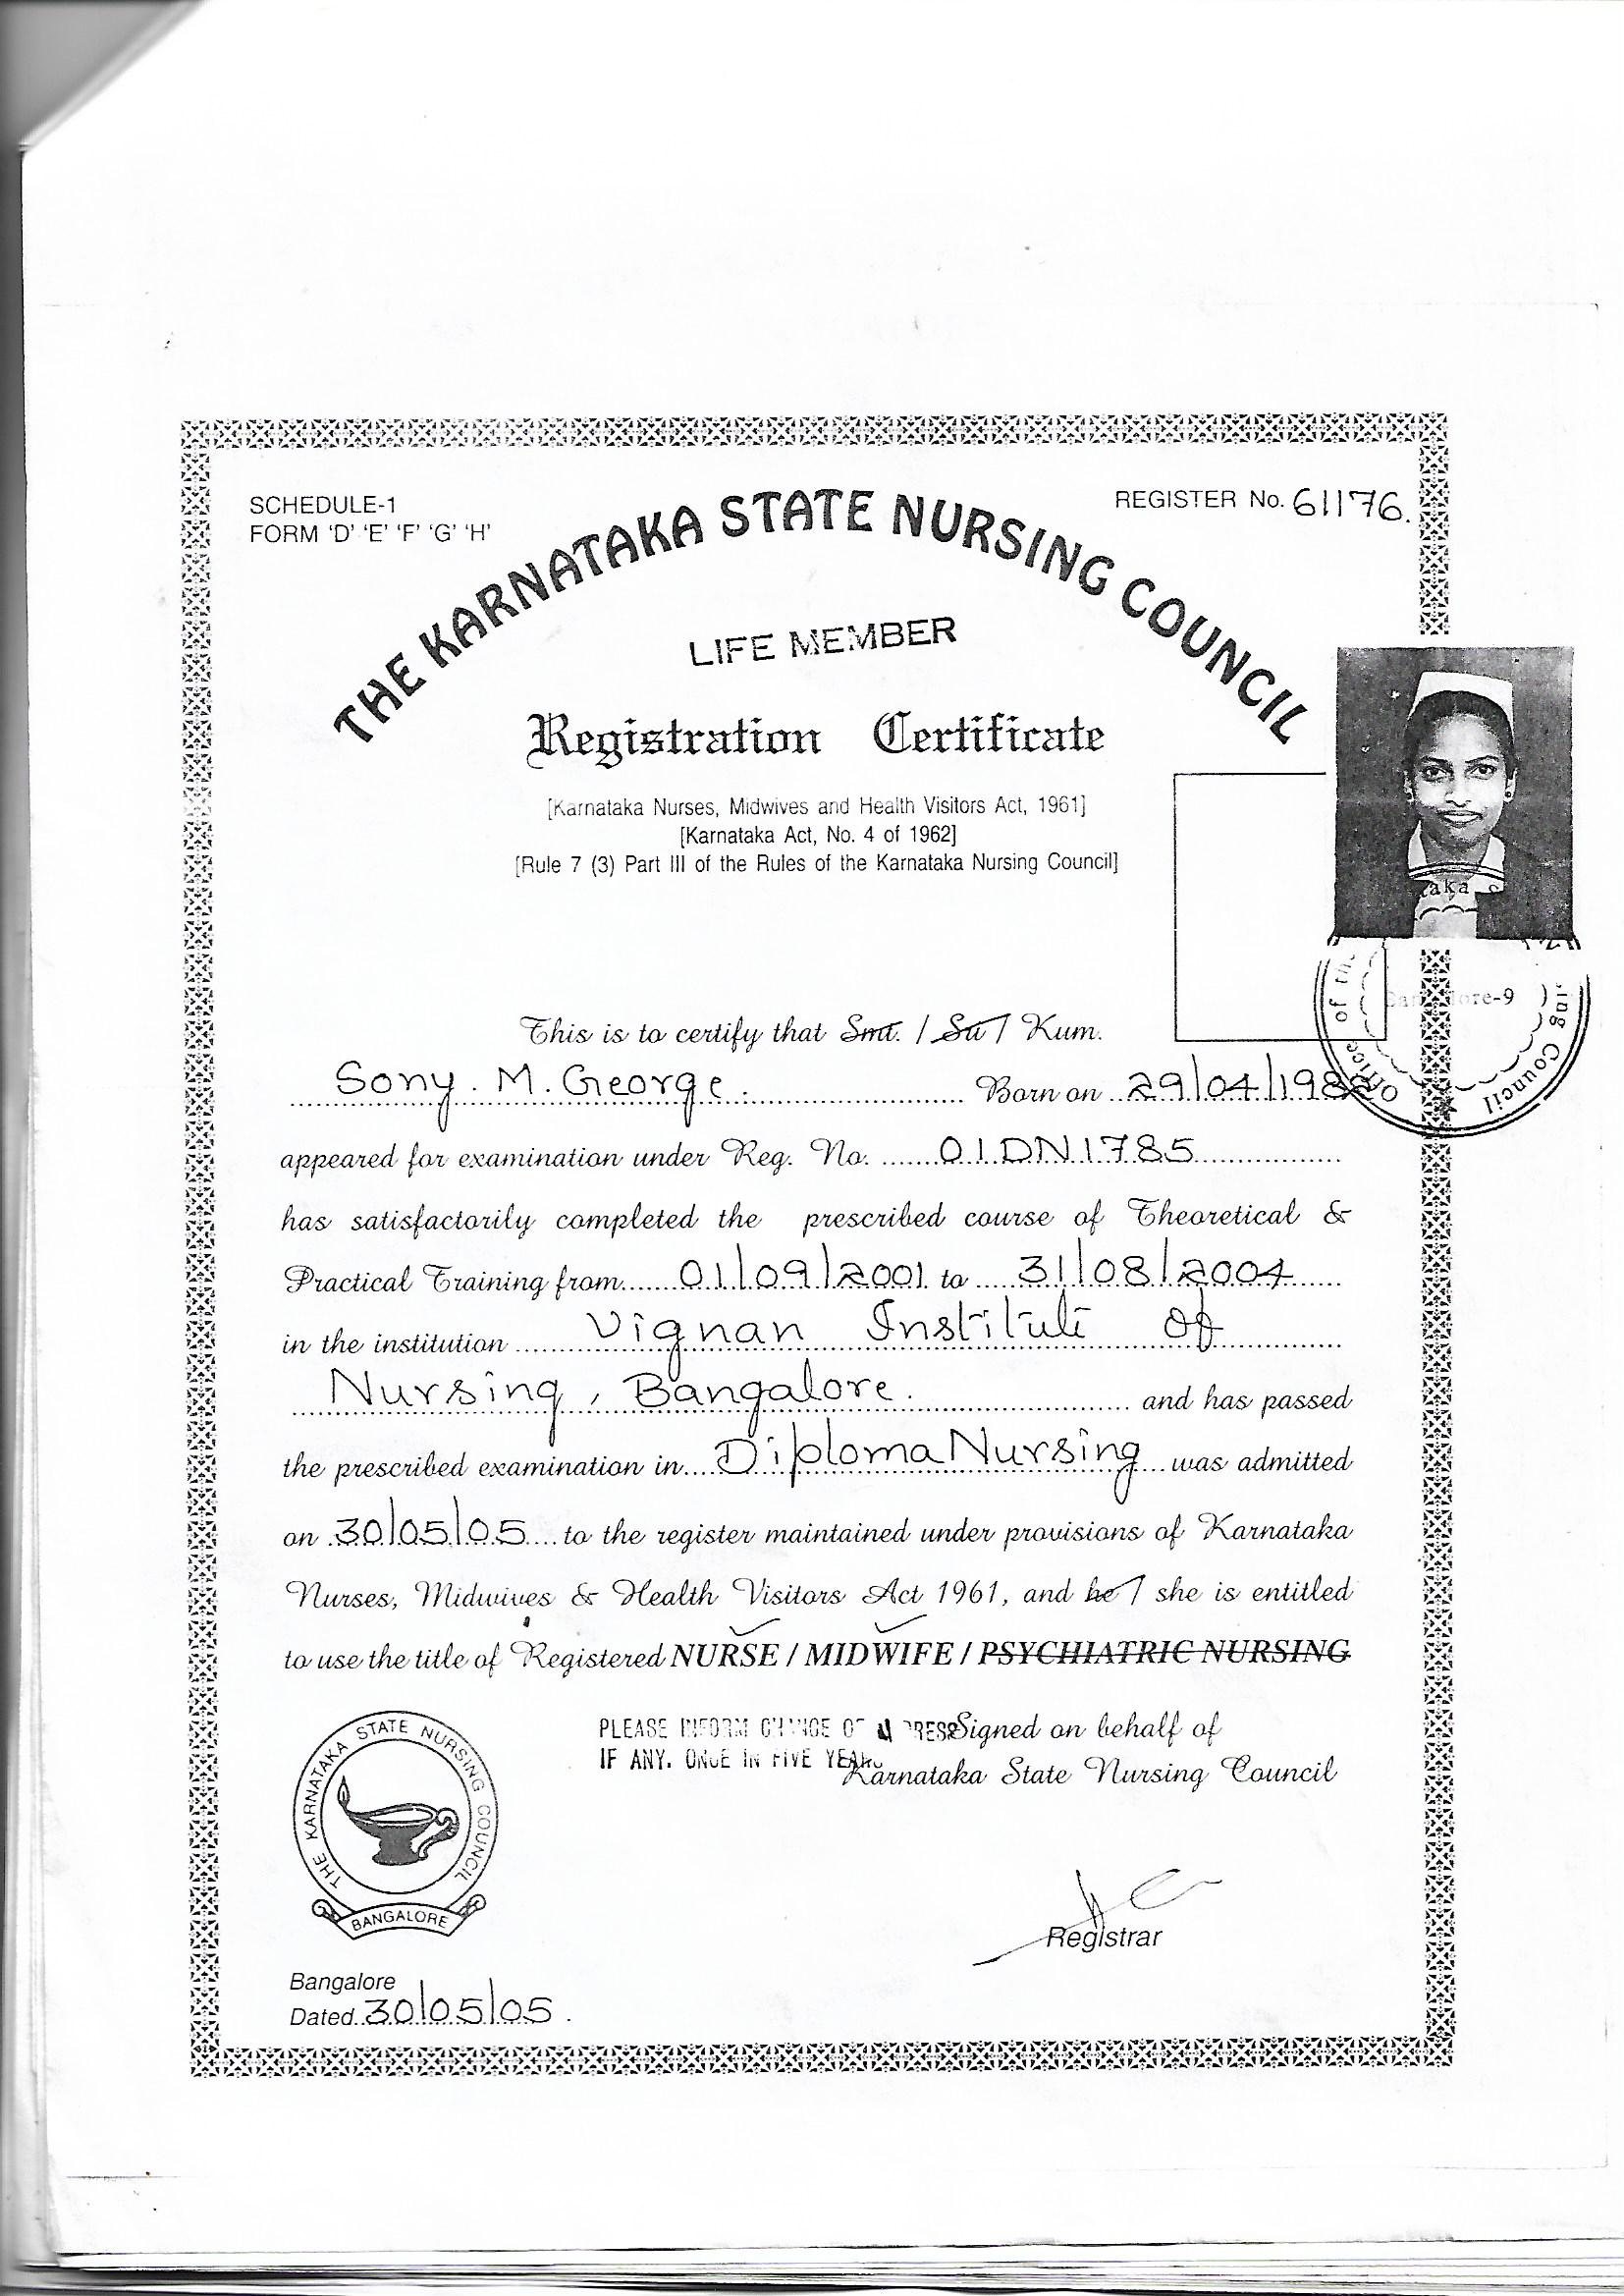 SCHEDULE-1
FORM 'D' 'E' 'F' 'G' 'H'
REGISTER No. 61176.
THE KARNATAKA STATE NURSING COUNCIL
LIFE MEMBER
Registration Certificate
[Karnataka Nurses, Midwives and Health Visitors Act, 1961]
[Karnataka Act, No. 4 of 1962]
[Rule 7 (3) Part III of the Rules of the Karnataka Nursing Council]
This is to certify that Smt. / Sri / Kum.
Sony. M. George. Born on 29/04/1982
appeared for examination under Reg. No. 01DN1785
has satisfactorily completed the prescribed course of Theoretical &
Practical Training from 01/09/2001 to 31/08/2004
in the institution Vignan Institute Of
Nursing, Bangalore. and has passed
the prescribed examination in Diploma Nursing was admitted
on 30/05/05 to the register maintained under provisions of Karnataka
Nurses, Midwives & Health Visitors Act 1961, and he / she is entitled
to use the title of Registered NURSE / MIDWIFE / PSYCHIATRIC NURSING
PLEASE INFORM CHANGE OF
IF ANY. ONCE IN FIVE YEARS
Signed on behalf of
Karnataka State Nursing Council
THE KARNATAKA STATE NURSING COUNCIL
BANGALORE
Registrar
Bangalore
Dated 30/05/05.